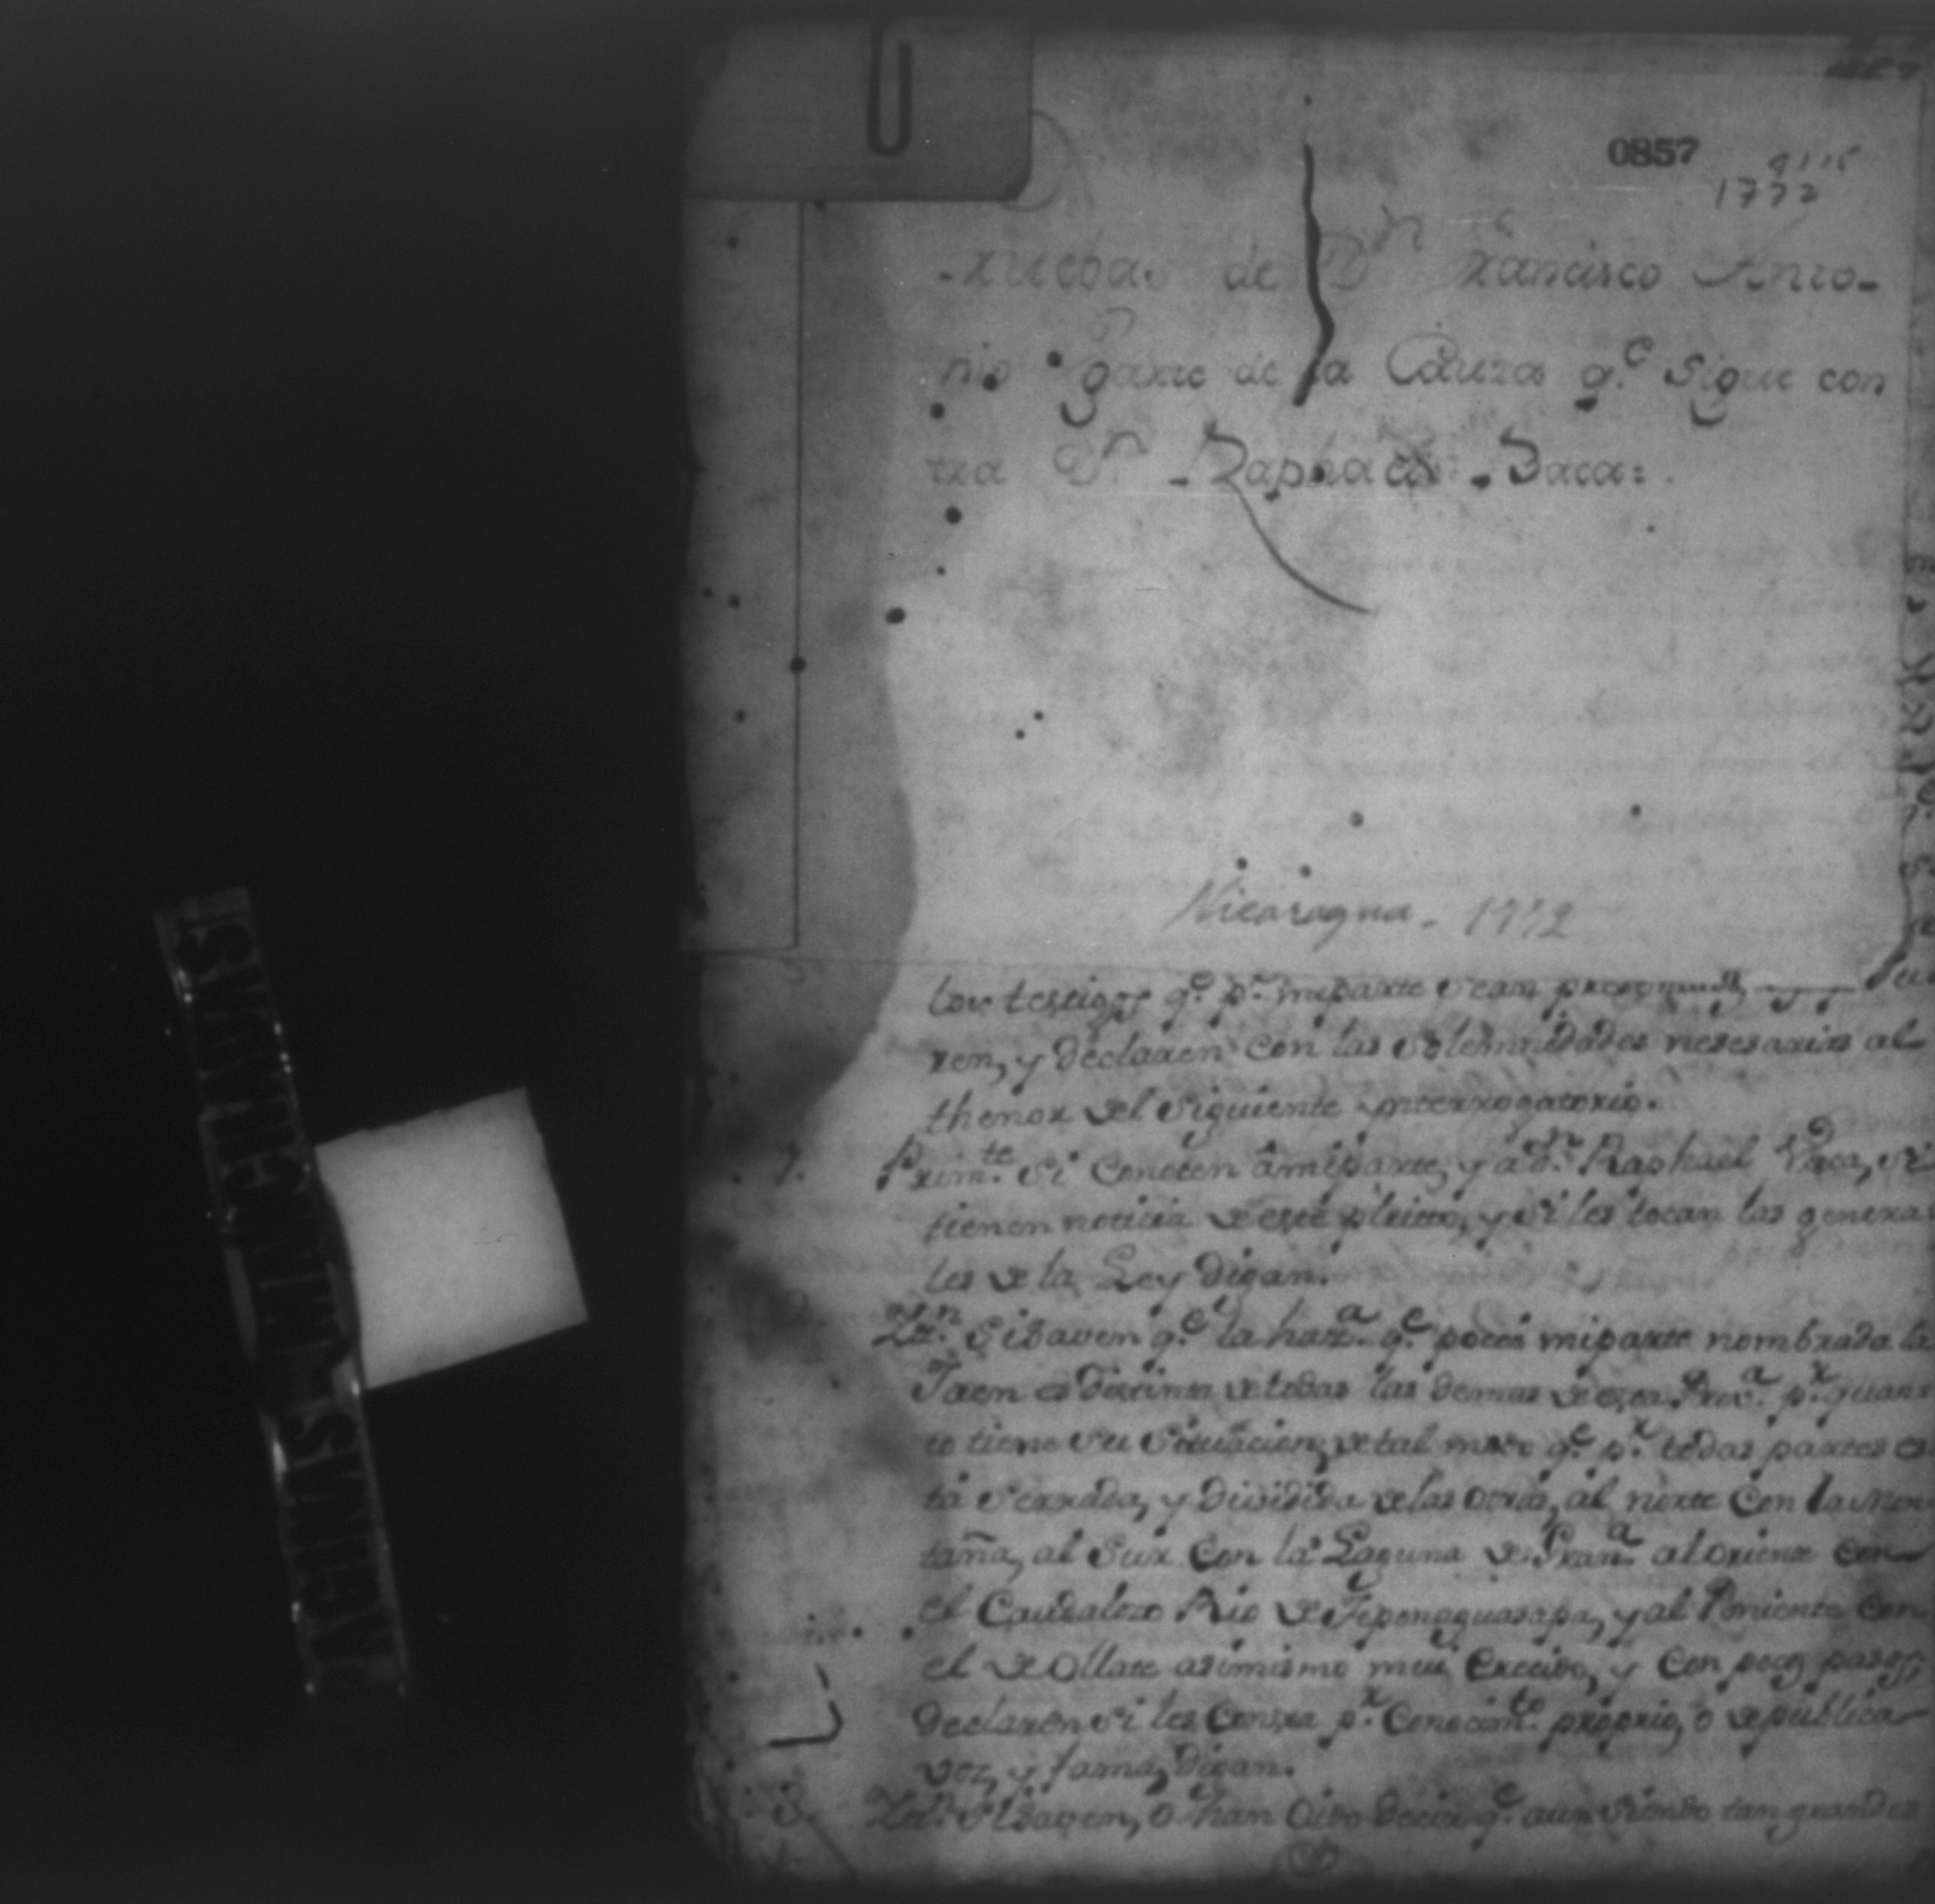 0857
1772
Pruebas de Dn Francisco Anto-
nio Ugarte de la Cauza q.e Sigue con
tra Dn Raphael Baca:
Nicaragua - 1772
los testigos q.e p.r mi parte sean
ren, y declaren con las solemnidades nesesarias al
thenor del siguiente interrogatorio.
1. Prim.te si conocen â mi parte, y a d.n Raphael Vaca, si
tienen noticia de este pleitto, y si les tocan las genera
les de la Ley digan.
Itt.n Si saven q.e la haz.a q.e poceé mi parte nombrada la
Jaen es distinta de todas las demas de esta Prov.a p.r quan
to tiene su situâcion, de tal modo q.e p.r todas partes es
tá serrada, y dividida de las otras, al norte con la Mon
taña, al Sur con la Laguna de Gran.a al oriente con
el Caudaloso Rio de Teponaguasapa, y al Poniente con
el de Ollate asimismo mui y con pocos pasos,
declaren si les consta p.r conocim.to proprio, o de publica
voz, y fama, digan.
3. Itt.n Si saven, o han oido decir q.e aun siendo tan grandes